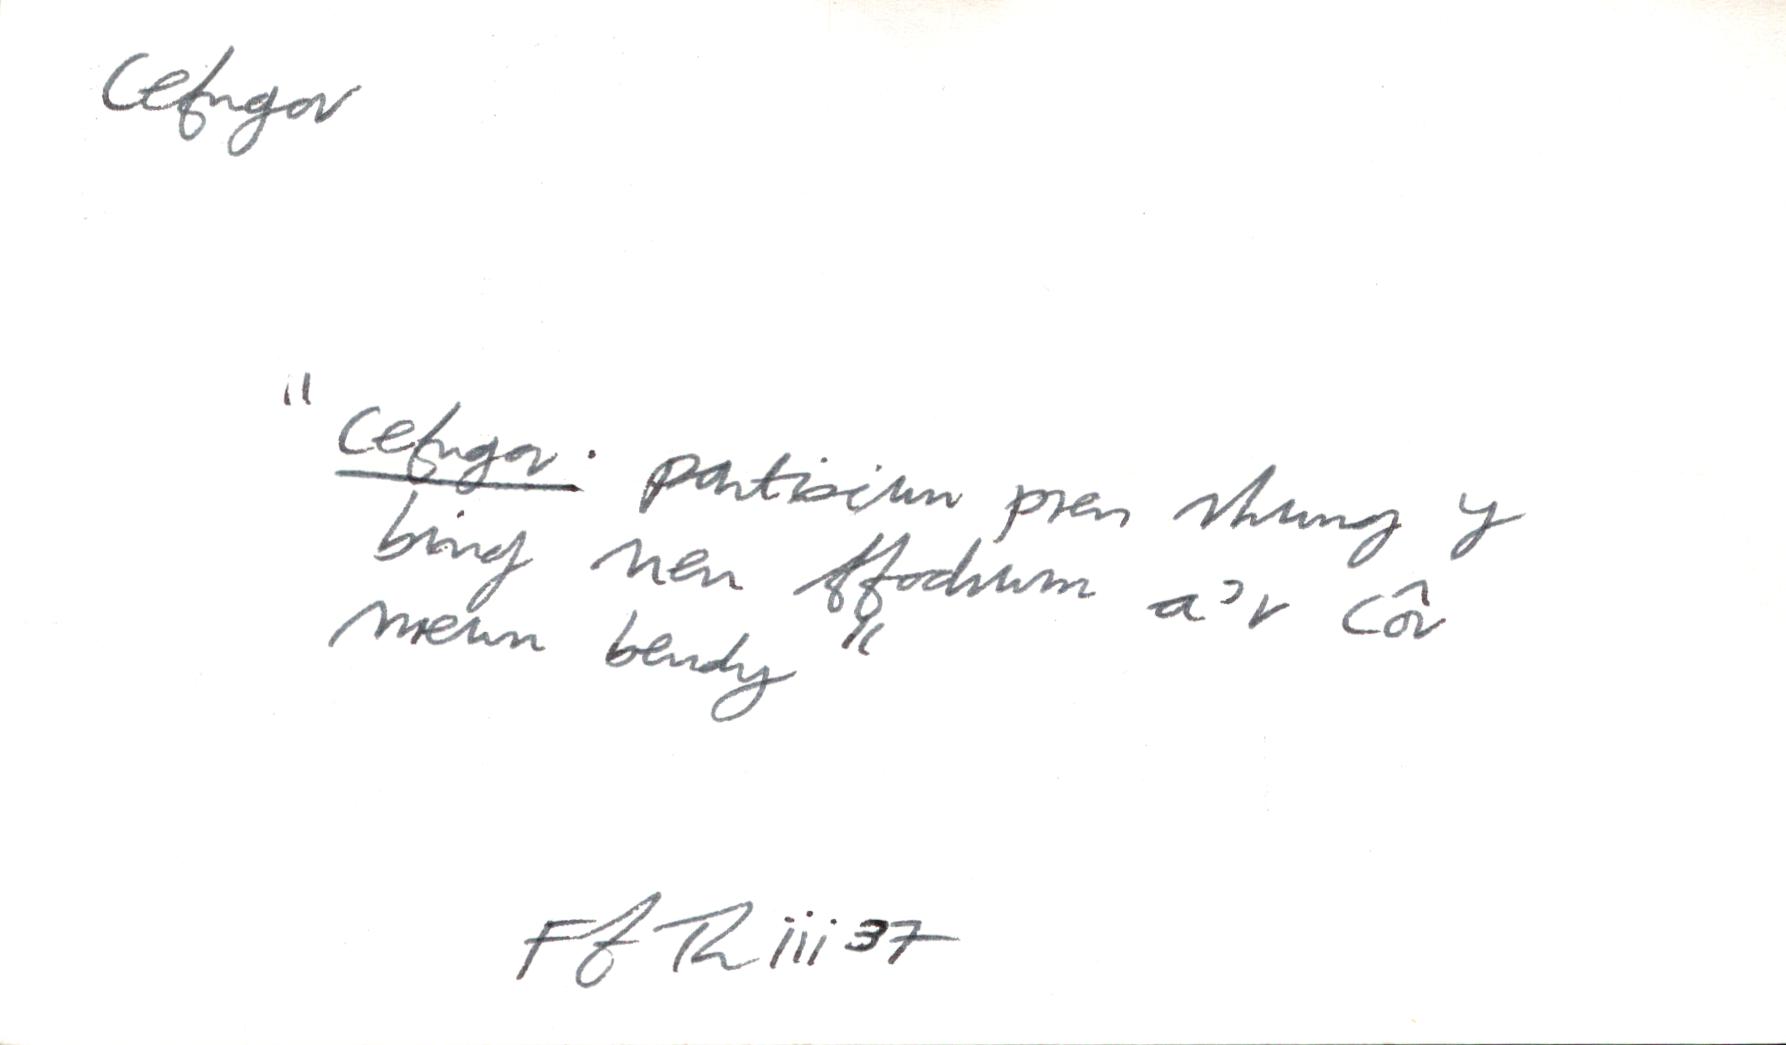 Cefngor
" Cefngor. partisiwn pren rhwng y
bing neu ffodrwm a'r côr
mewn beudy "
Ff Th iii 37